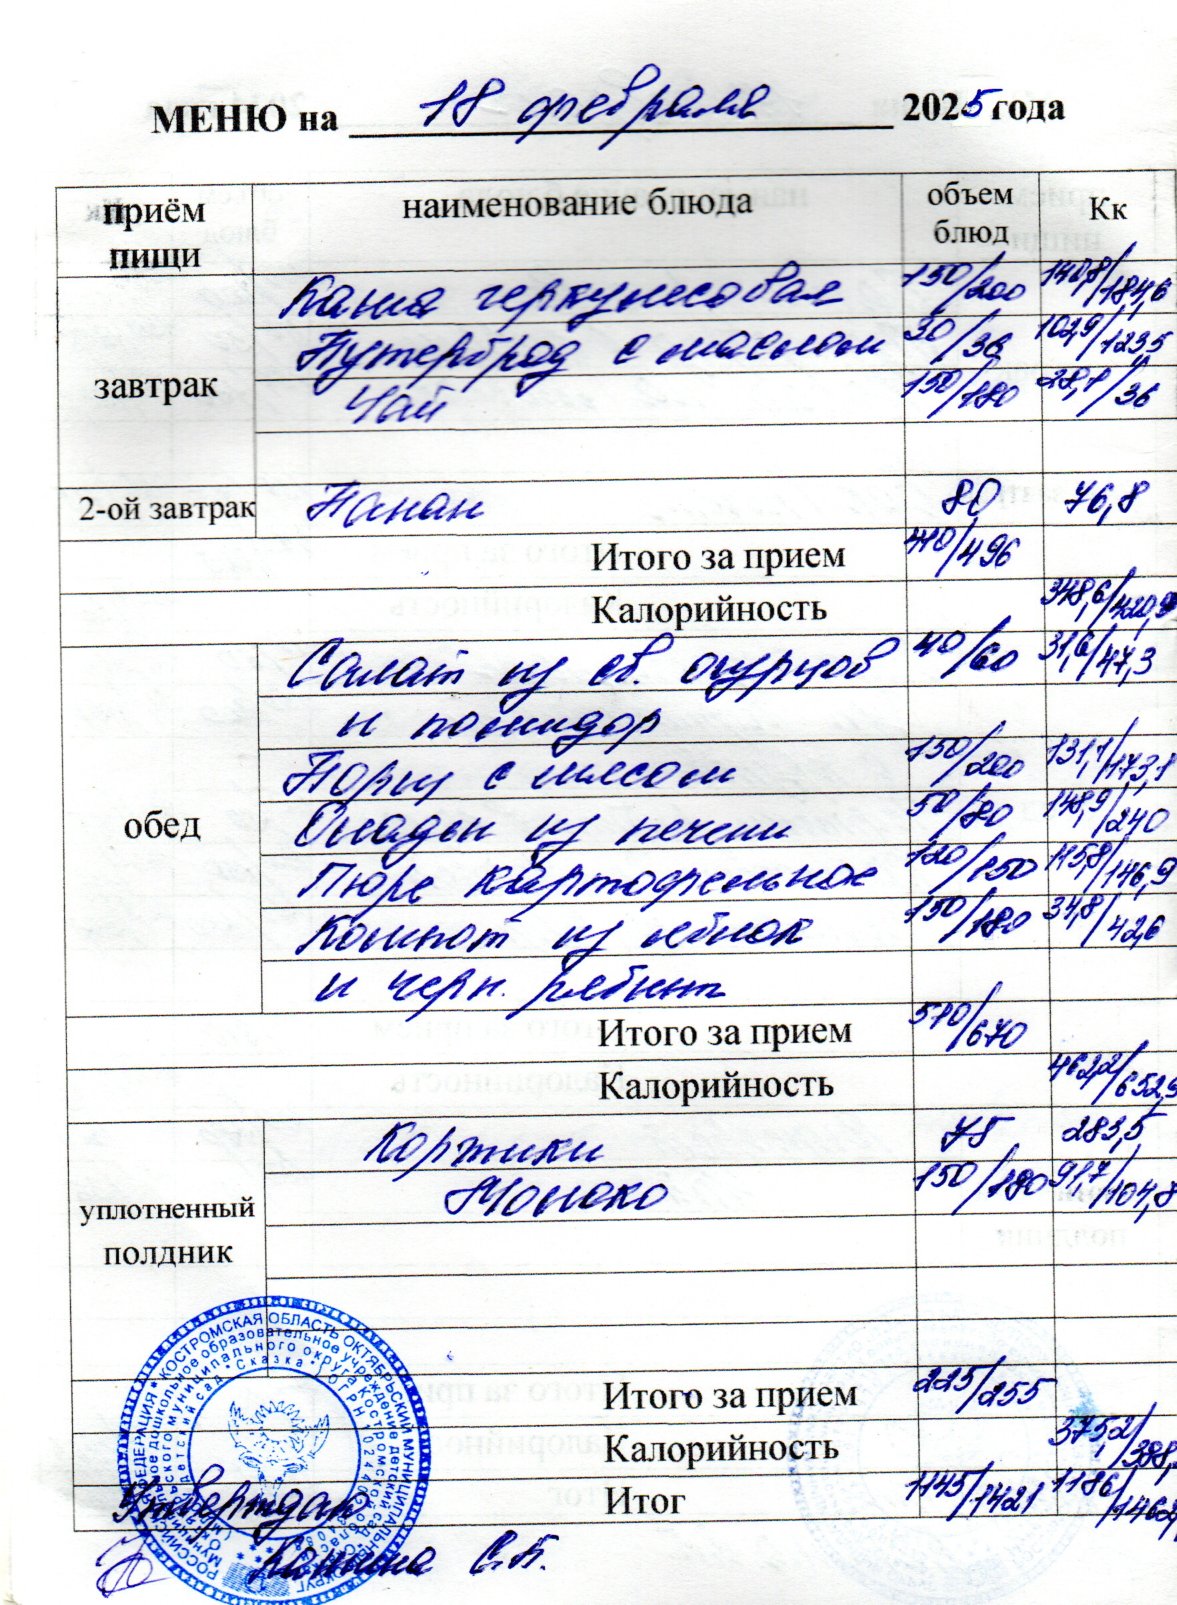 МЕНЮ на 18 февраля 2025 года
приём пищи наименование блюда объем блюд Кк
завтрак
Каша геркулесовая 150/200 140,8/184,6
Бутерброд с маслом 30/36 102,9/123,5
Чай 150/180 28,1/36
2-ой завтрак Банан 80 76,8
Итого за прием 410/496
Калорийность 348,6/420,9
обед
Салат из св. огурцов 40/60 31,6/47,3
и помидор
Борщ с мясом 150/200 131,1/173,1
Оладьи из печени 50/80 148,9/240
Пюре картофельное 120/150 115,8/146,9
Компот из яблок 150/180 34,8/42,6
и черн. рябины
Итого за прием 510/670
Калорийность 462,2/652,9
уплотненный полдник
Коржики 75 283,5
Молоко 150/180 91,7/104,8
Итого за прием 225/255
Калорийность 375,2/388,
Итог 1145/1421 1186/1462,
Утверждаю
С.В.
РОССИЙСКАЯ ФЕДЕРАЦИЯ * КОСТРОМСКАЯ ОБЛАСТЬ ОКТЯБРЬСКИЙ МУНИЦИПАЛЬНЫЙ ОКРУГ
Муниципальное дошкольное образовательное учреждение детский сад
муниципального округа Костромской области
детский сад "Сказка" * ОГРН